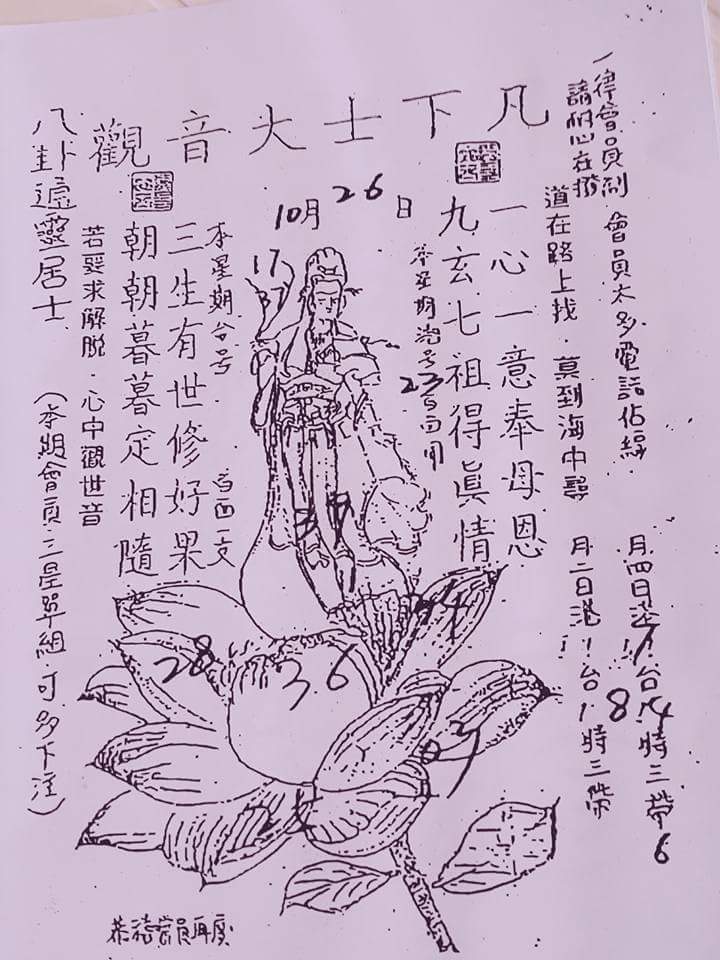 觀音大士下凡
一律會員制．會員太多電話佔線
請耐心在撥
道在路上找．莫到海中尋
月四日港1台14特三帶6
8
月二日港1台1特三帶
10月26日
一心一意奉母恩
九玄七祖得眞情
本星期港号23号百用
三生有世修好果
朝朝暮暮定相隨
本星期台号
若要求解脱．心中觀世音
八卦遁靈居士
(本期會員．三星單組．可多下注)
17
37
39
34
28
36
03
恭禧會員再度